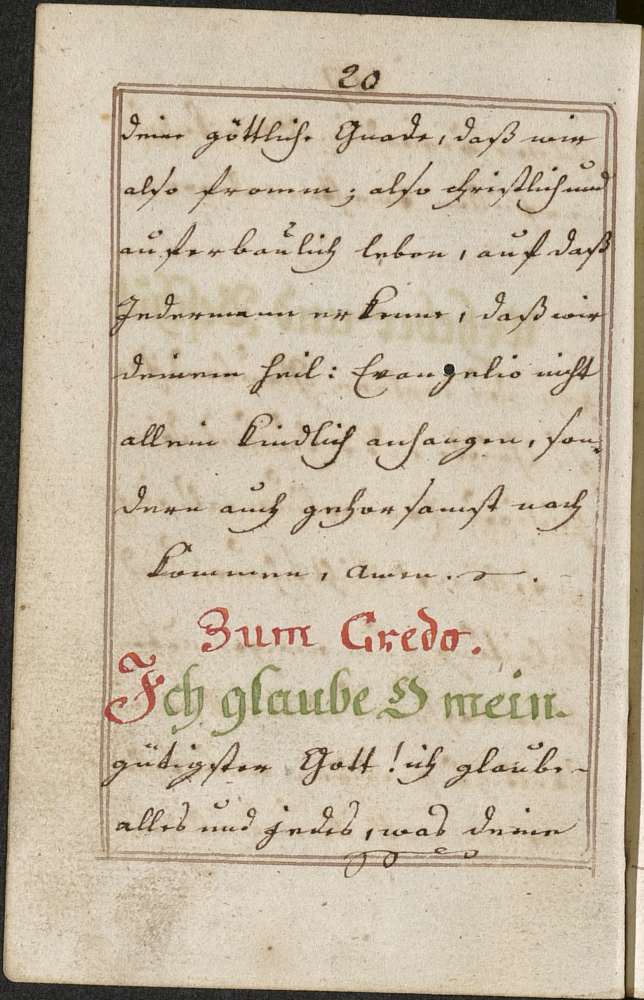 20
deine göttliche Gnade, daß wir
also fromm, also christlich und
auferbaulich leben, auf daß
Jedermann erkenne, daß wir
deinem heil: Evangelio nicht
allein kindlich anhangen, son,
dern auch gehorsamst nach
kommen, amen.
Zum Credo.
Ich glaube O mein.
gütigster Gott! ich glaube
alles und jedes, was deine